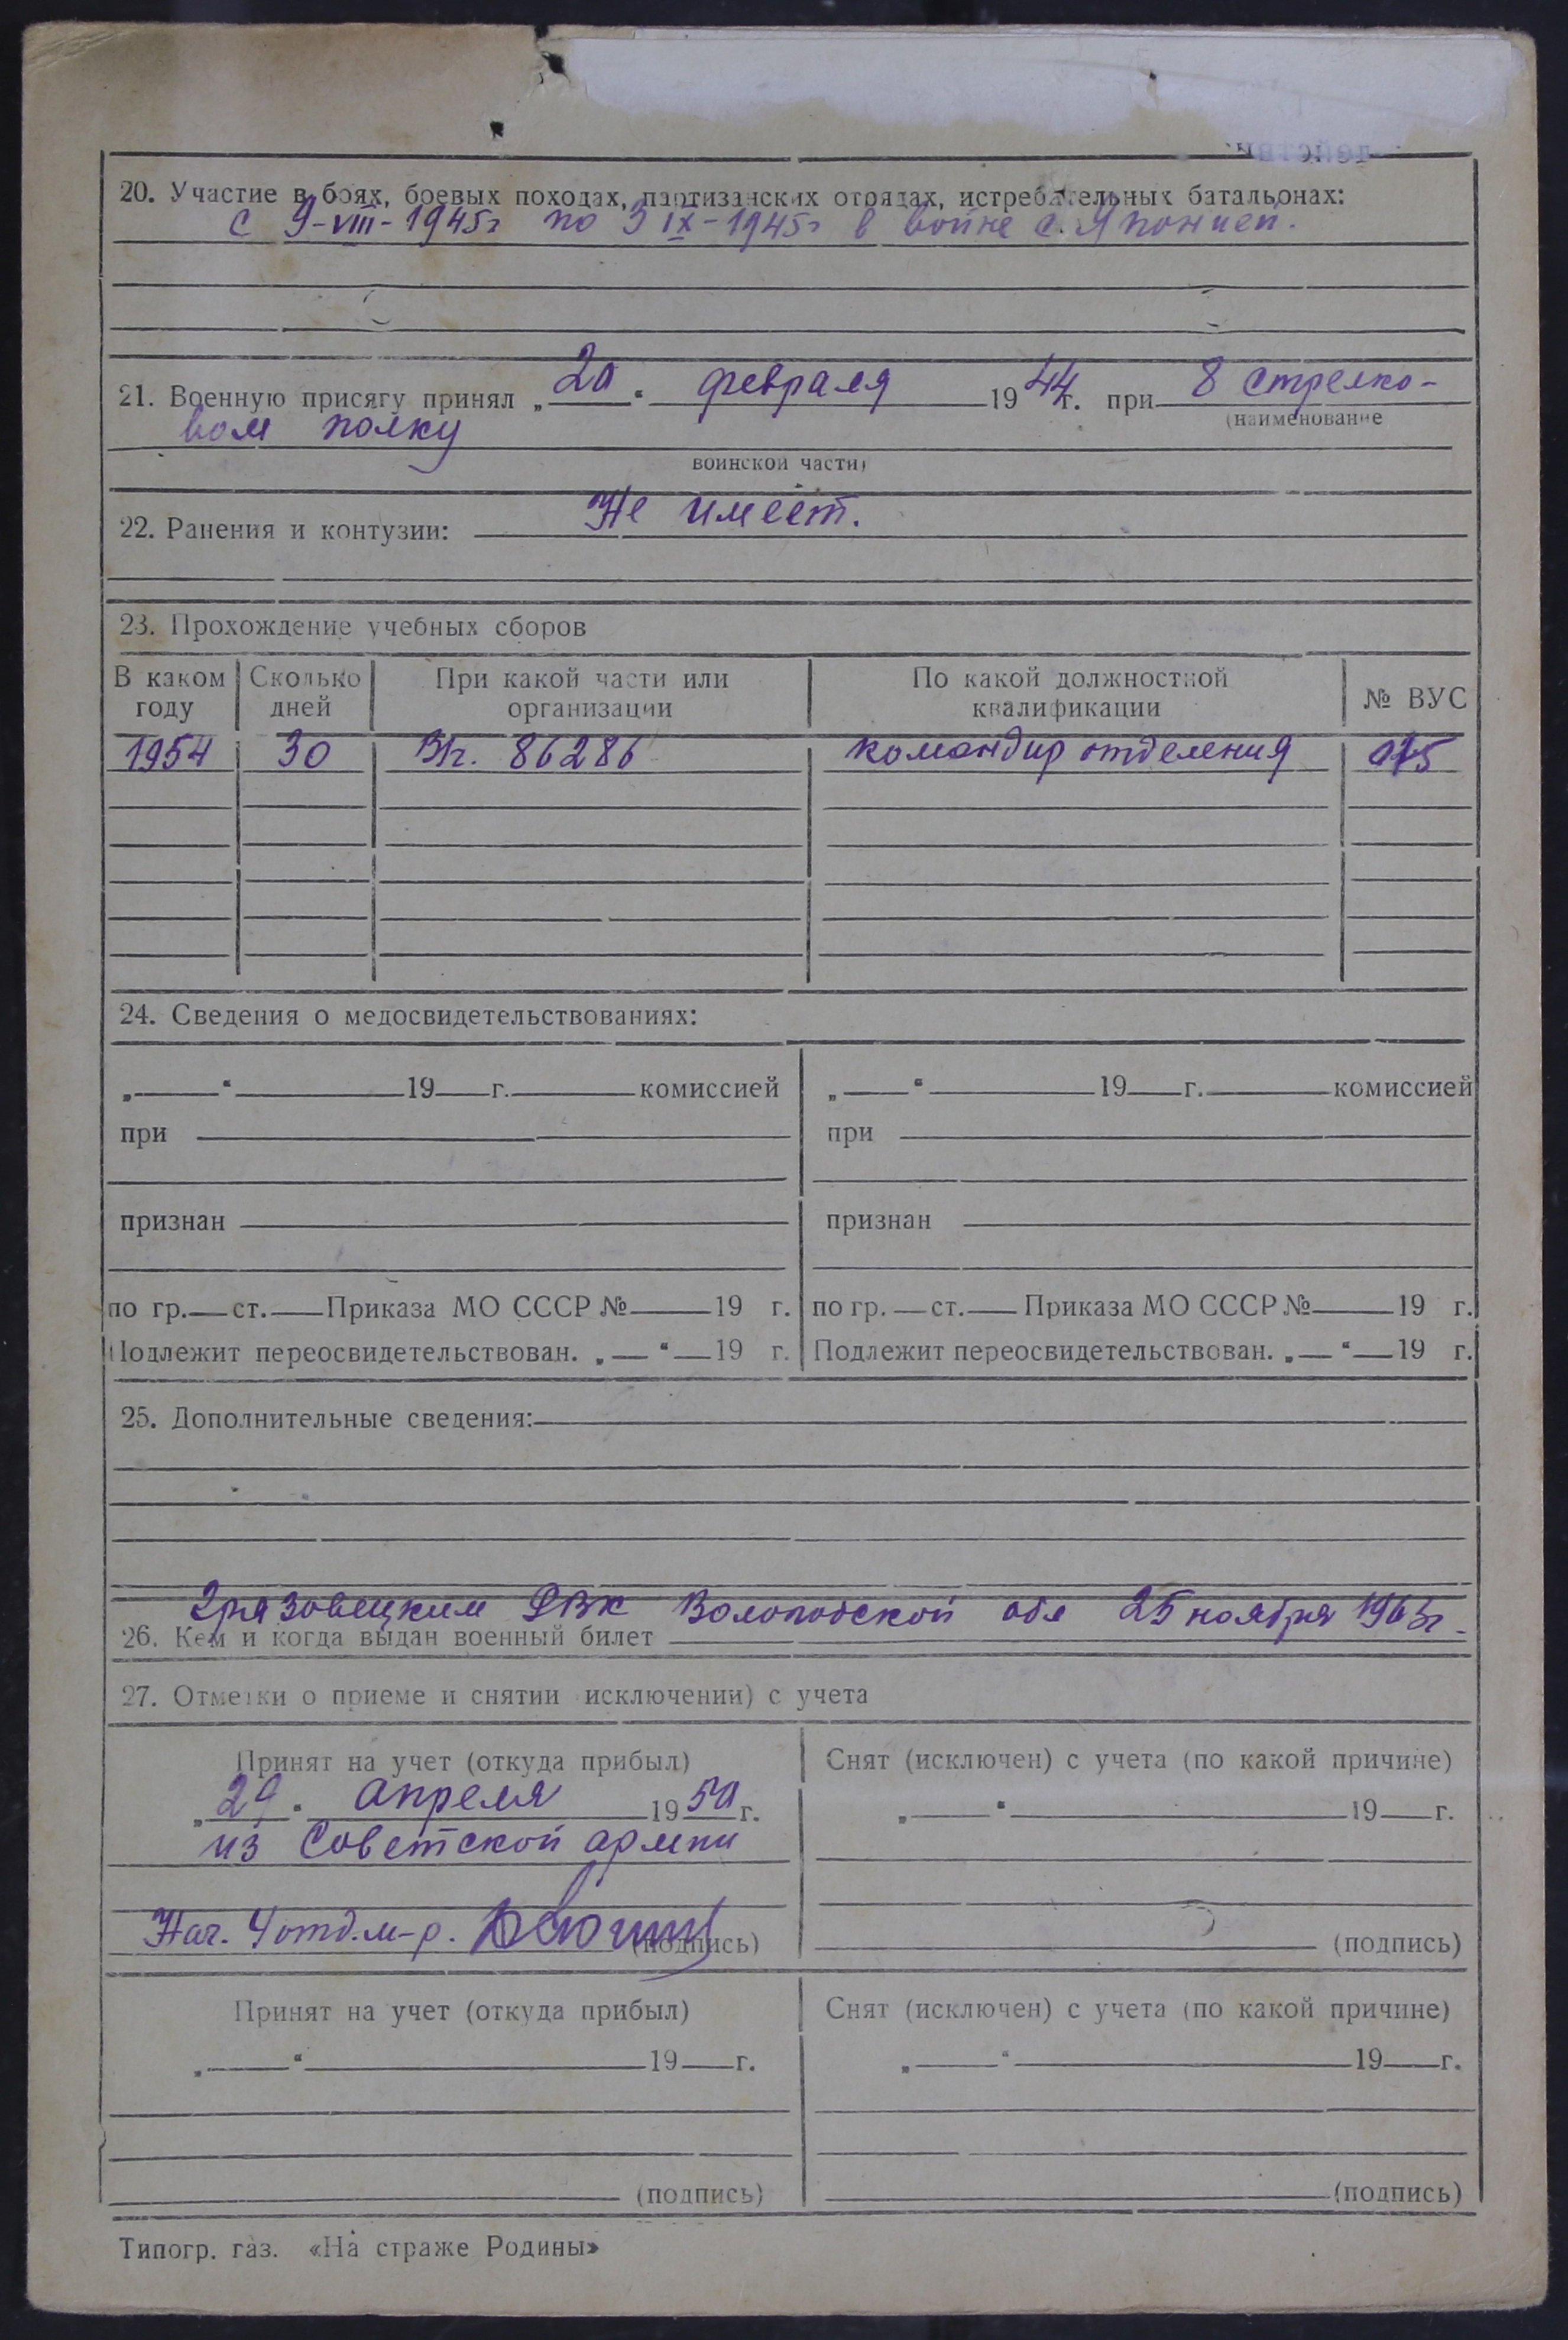 20. Участие в боях, боевых походах, партизанских отрядах, истребительных батальонах:
с 9-VIII-1945г по 3 IX-1945г в войне с Японией.
21. Военную присягу принял „20“ февраля 1944г. при 8 стрелко-
(наименование
вом полку
воинской части)
22. Ранения и контузии: Не имеет.
23. Прохождение учебных сборов
В каком году Сколько дней При какой части или организации По какой должностной квалификации № ВУС
1954 30 В/ч. 86286 командир отделения
24. Сведения о медосвидетельствованиях:
„ “ 19 г. комиссией „ “ 19 г. комиссией
при при
признан признан
по гр. ст. Приказа МО СССР № 19 г. по гр. ст. Приказа МО СССР № 19 г.
Подлежит переосвидетельствован. „ “ 19 г. Подлежит переосвидетельствован. „ “ 19 г.
25. Дополнительные сведения:
Грязовецким РВК Вологодской обл 25 ноября 1963г.
26. Кем и когда выдан военный билет
27. Отметки о приеме и снятии исключении) с учета
Принят на учет (откуда прибыл) Снят (исключен) с учета (по какой причине)
„29“ апреля 1950г. „ “ 19 г.
из Советской армии
Нач. 4 отд. м-р. (подпись) (подпись)
Принят на учет (откуда прибыл) Снят (исключен) с учета (по какой причине)
„ “ 19 г. „ “ 19 г.
(подпись) (подпись)
Типогр. газ. «На страже Родины»